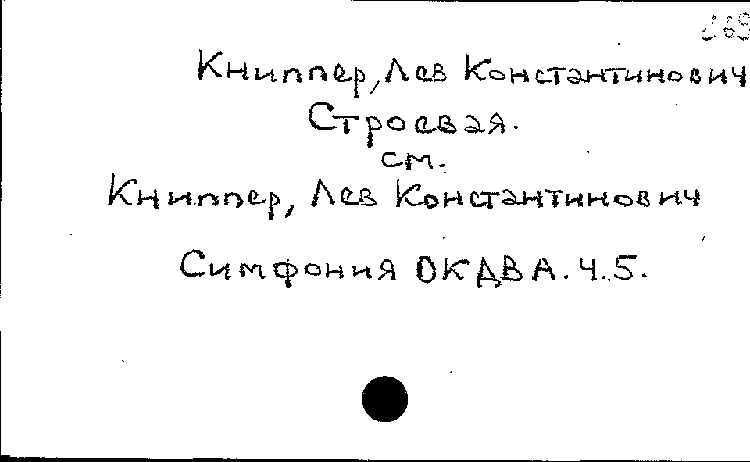 Книппер, Лев Константинович
Строевая.
см.
Книппер, Лев Константинович
Симфония ОКДВА. Ч. 5.